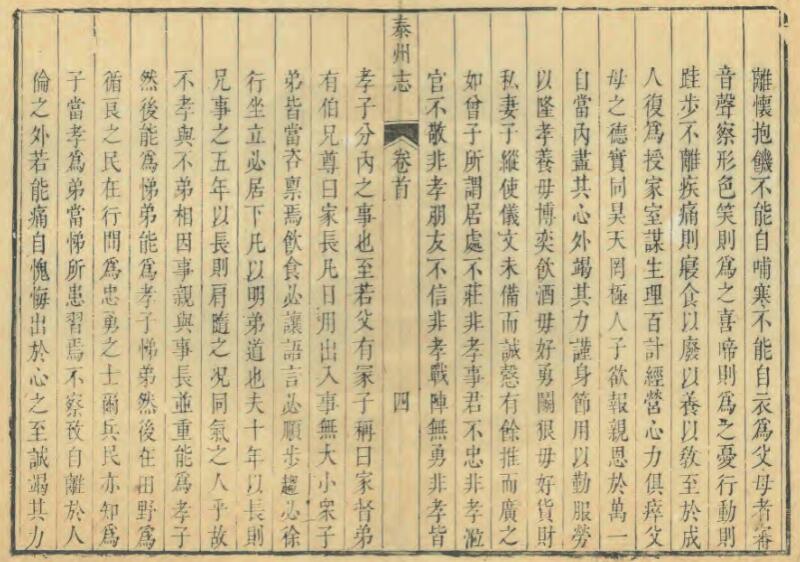 離懷抱饑不能自哺寒不能自衣為父母者審
音聲察形色笑則為之喜啼則為之憂行動則
跬步不離疾痛則寢食以廢以養以教至於成
人復為授家室謀生理百計經營心力俱瘁父
母之德實同昊天罔極人子欲報親恩於萬一
自當內盡其心外竭其力謹身節用以勤服勞
以隆孝養毋博奕飲酒毋好勇鬭狠毋好貨財
私妻子縱使儀文未備而誠慤有餘推而廣之
如曾子所謂居處不莊非孝事君不忠非孝涖
官不敬非孝朋友不信非孝戰陣無勇非孝皆
泰州志 卷首 四
孝子分內之事也至若父有冡子稱曰家督弟
有伯兄尊曰家長凡日用出入事無大小衆子
弟皆當咨稟焉飲食必讓語言必順步趨必徐
行坐立必居下凡以明弟道也夫十年以長則
兄事之五年以長則肩隨之况同氣之人乎故
不孝與不弟相因事親與事長並重能為孝子
然後能為悌弟能為孝子悌弟然後在田野為
循良之民在行間為忠勇之士爾兵民亦知為
子當孝為弟當悌所患習焉不察致自離於人
倫之外若能痛自愧悔出於心之至誠竭其力